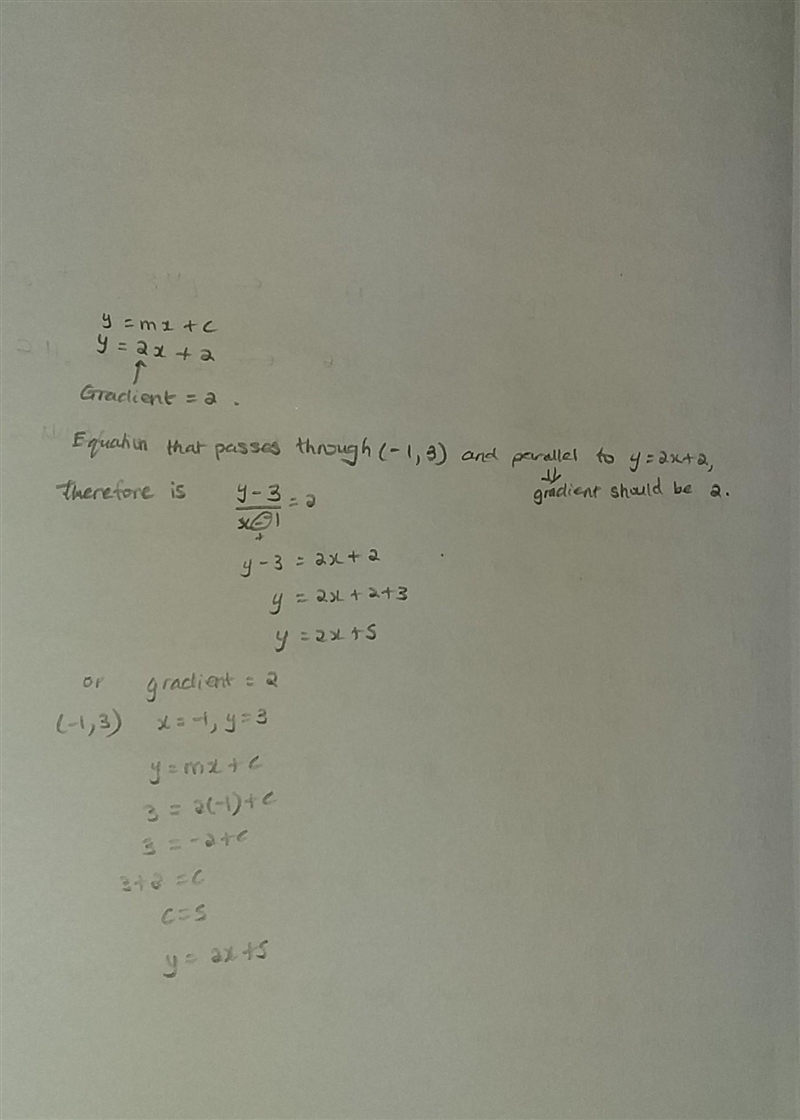 y = mx + c
y = 2x + 2
↑
Gradient = 2 .
Equation that passes through (-1, 3) and parallel to y = 2x+2,
⇓
therefore is y - 3 / x - - 1 = 2 gradient should be 2.
+
y - 3 = 2x + 2
y = 2x + 2 + 3
y = 2x + 5
or gradient = 2
(-1, 3) x = -1, y = 3
y = mx + c
3 = 2(-1) + c
3 = -2 + c
3 + 2 = c
c = 5
y = 2x + 5